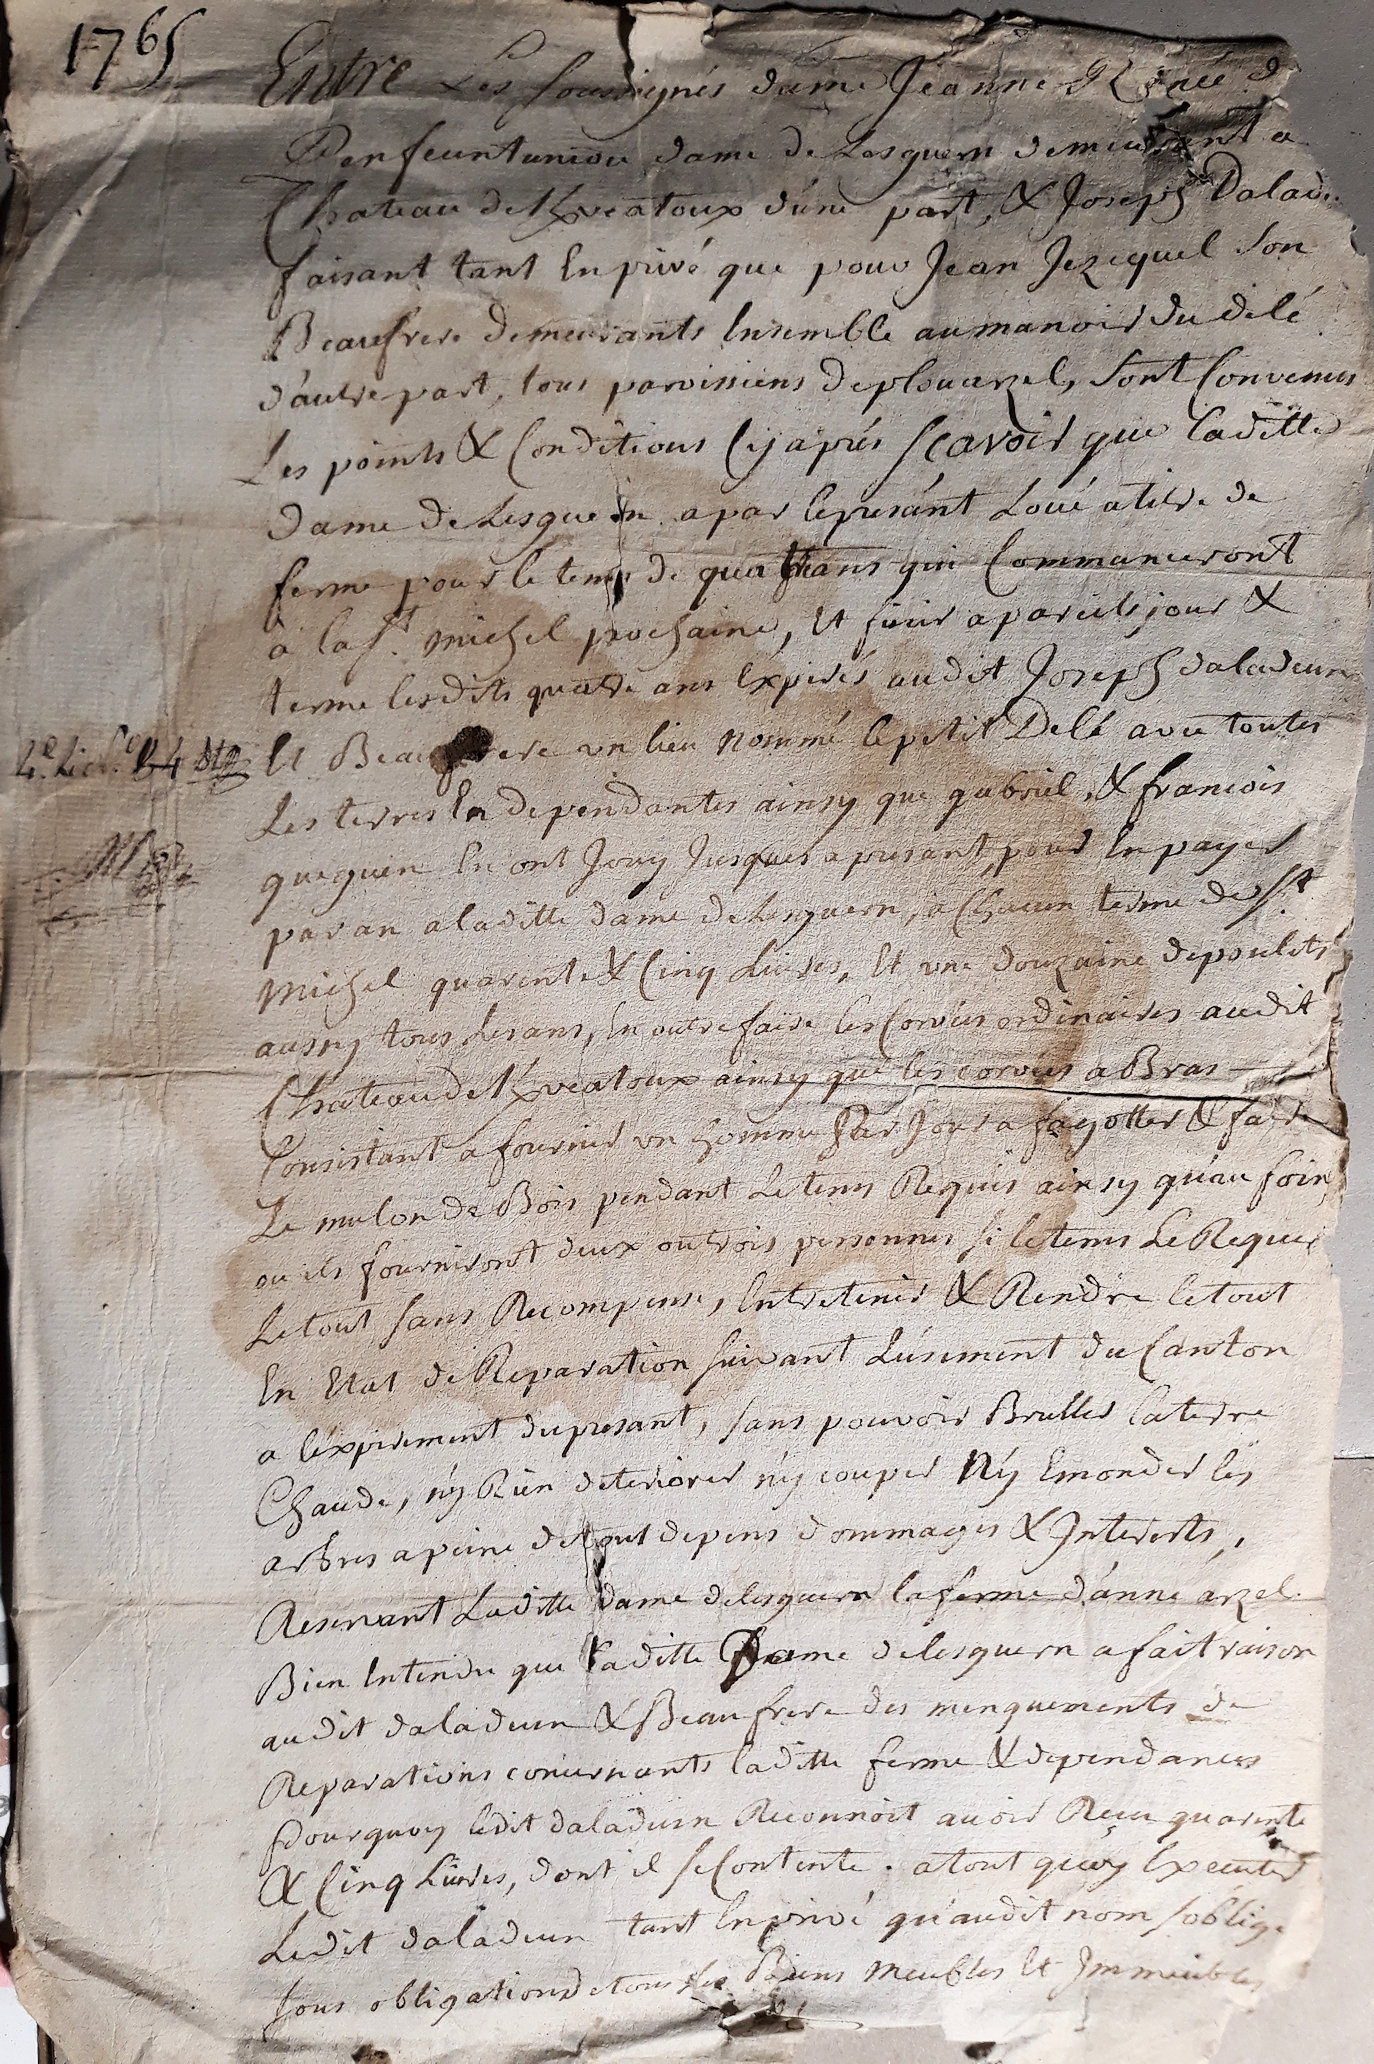 1765
Entre Les soussignés dame Jeanne Renée d
Penfeuntuniou dame de Lesguern demeurant a
Chateau de Kveatoux d'une part, & Joseph Dalade
faisant tant En privé que pour Jean Jezequel Son
Beaufrere demeurants Ensemble au manoir du delé
d'autre part, tous paroissiens deplouarzel, sont Convenus
Les points & Conditions Cy après sçavoir que laditte
dame de Lesguern a par lepresant Loué atitre de
ferme pour le tems de quattre ans qui Commanceront
a la st. michel prochaine, Et finir apareils jour &
terme lesdits quatre ans Expirés audit Joseph daladeun
Et Beaufrere un lieu nommé lepetit Delé avec toutes
Les terres En dependantes ainsy que gabriel, & francois
queguen En ont Jouy Jusques apresant, pour En payer
par an aladitte dame deLesguern, a Chacun terme de St
michel quarente & Cinq Livres, Et une douzaine depoulets
aussy tous Lesans, En outre faire les Corvées ordinaires audit
Chateau de Kveatoux ainsy que les corvées a Bras
Consistant a fournir un homme Par Jour a fagotter & faire
Le mulon de Bois pendant Letems Requis ainsy qu'au foin,
ou ils fourniront deux outrois personnes si letems Le Requis
Letout sans Recompense, Entretenir & Rendre letout
En Etat de Reparation suivant L'usement du Canton
a l'expirement dupresant, sans pouvoir Brusler laterre
Chaude, ny Rien deteriorer ny couper Ny Emonder les
arbres apeine detout depens dommages & Interests,
Reservant Laditte dame delesguern laferme d'anne arzel
Bien Entendu que laditte Dame delesguern afait raison
audit daladeun & Beaufrere des menquements de
Reparations concernants laditte ferme & dependances
Pourquoy ledit daladeun Reconnoit avoir Reçu quarente
& Cinq Livres, dont il seContente. atout quoy Executer
Ledit daladeun tant Enprivé qu'audit nom s'oblige
sous obligation detous ses Biens meubles Et Immeubles